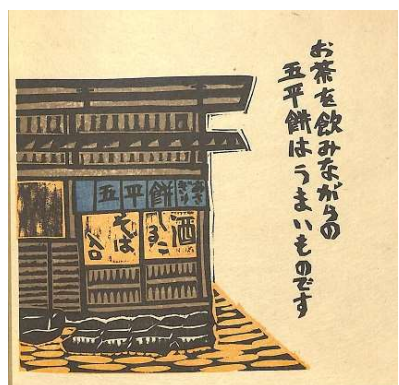 お茶を飲みながらの
五平餅はうまいものです
五平餅
酒
しるこ
そば